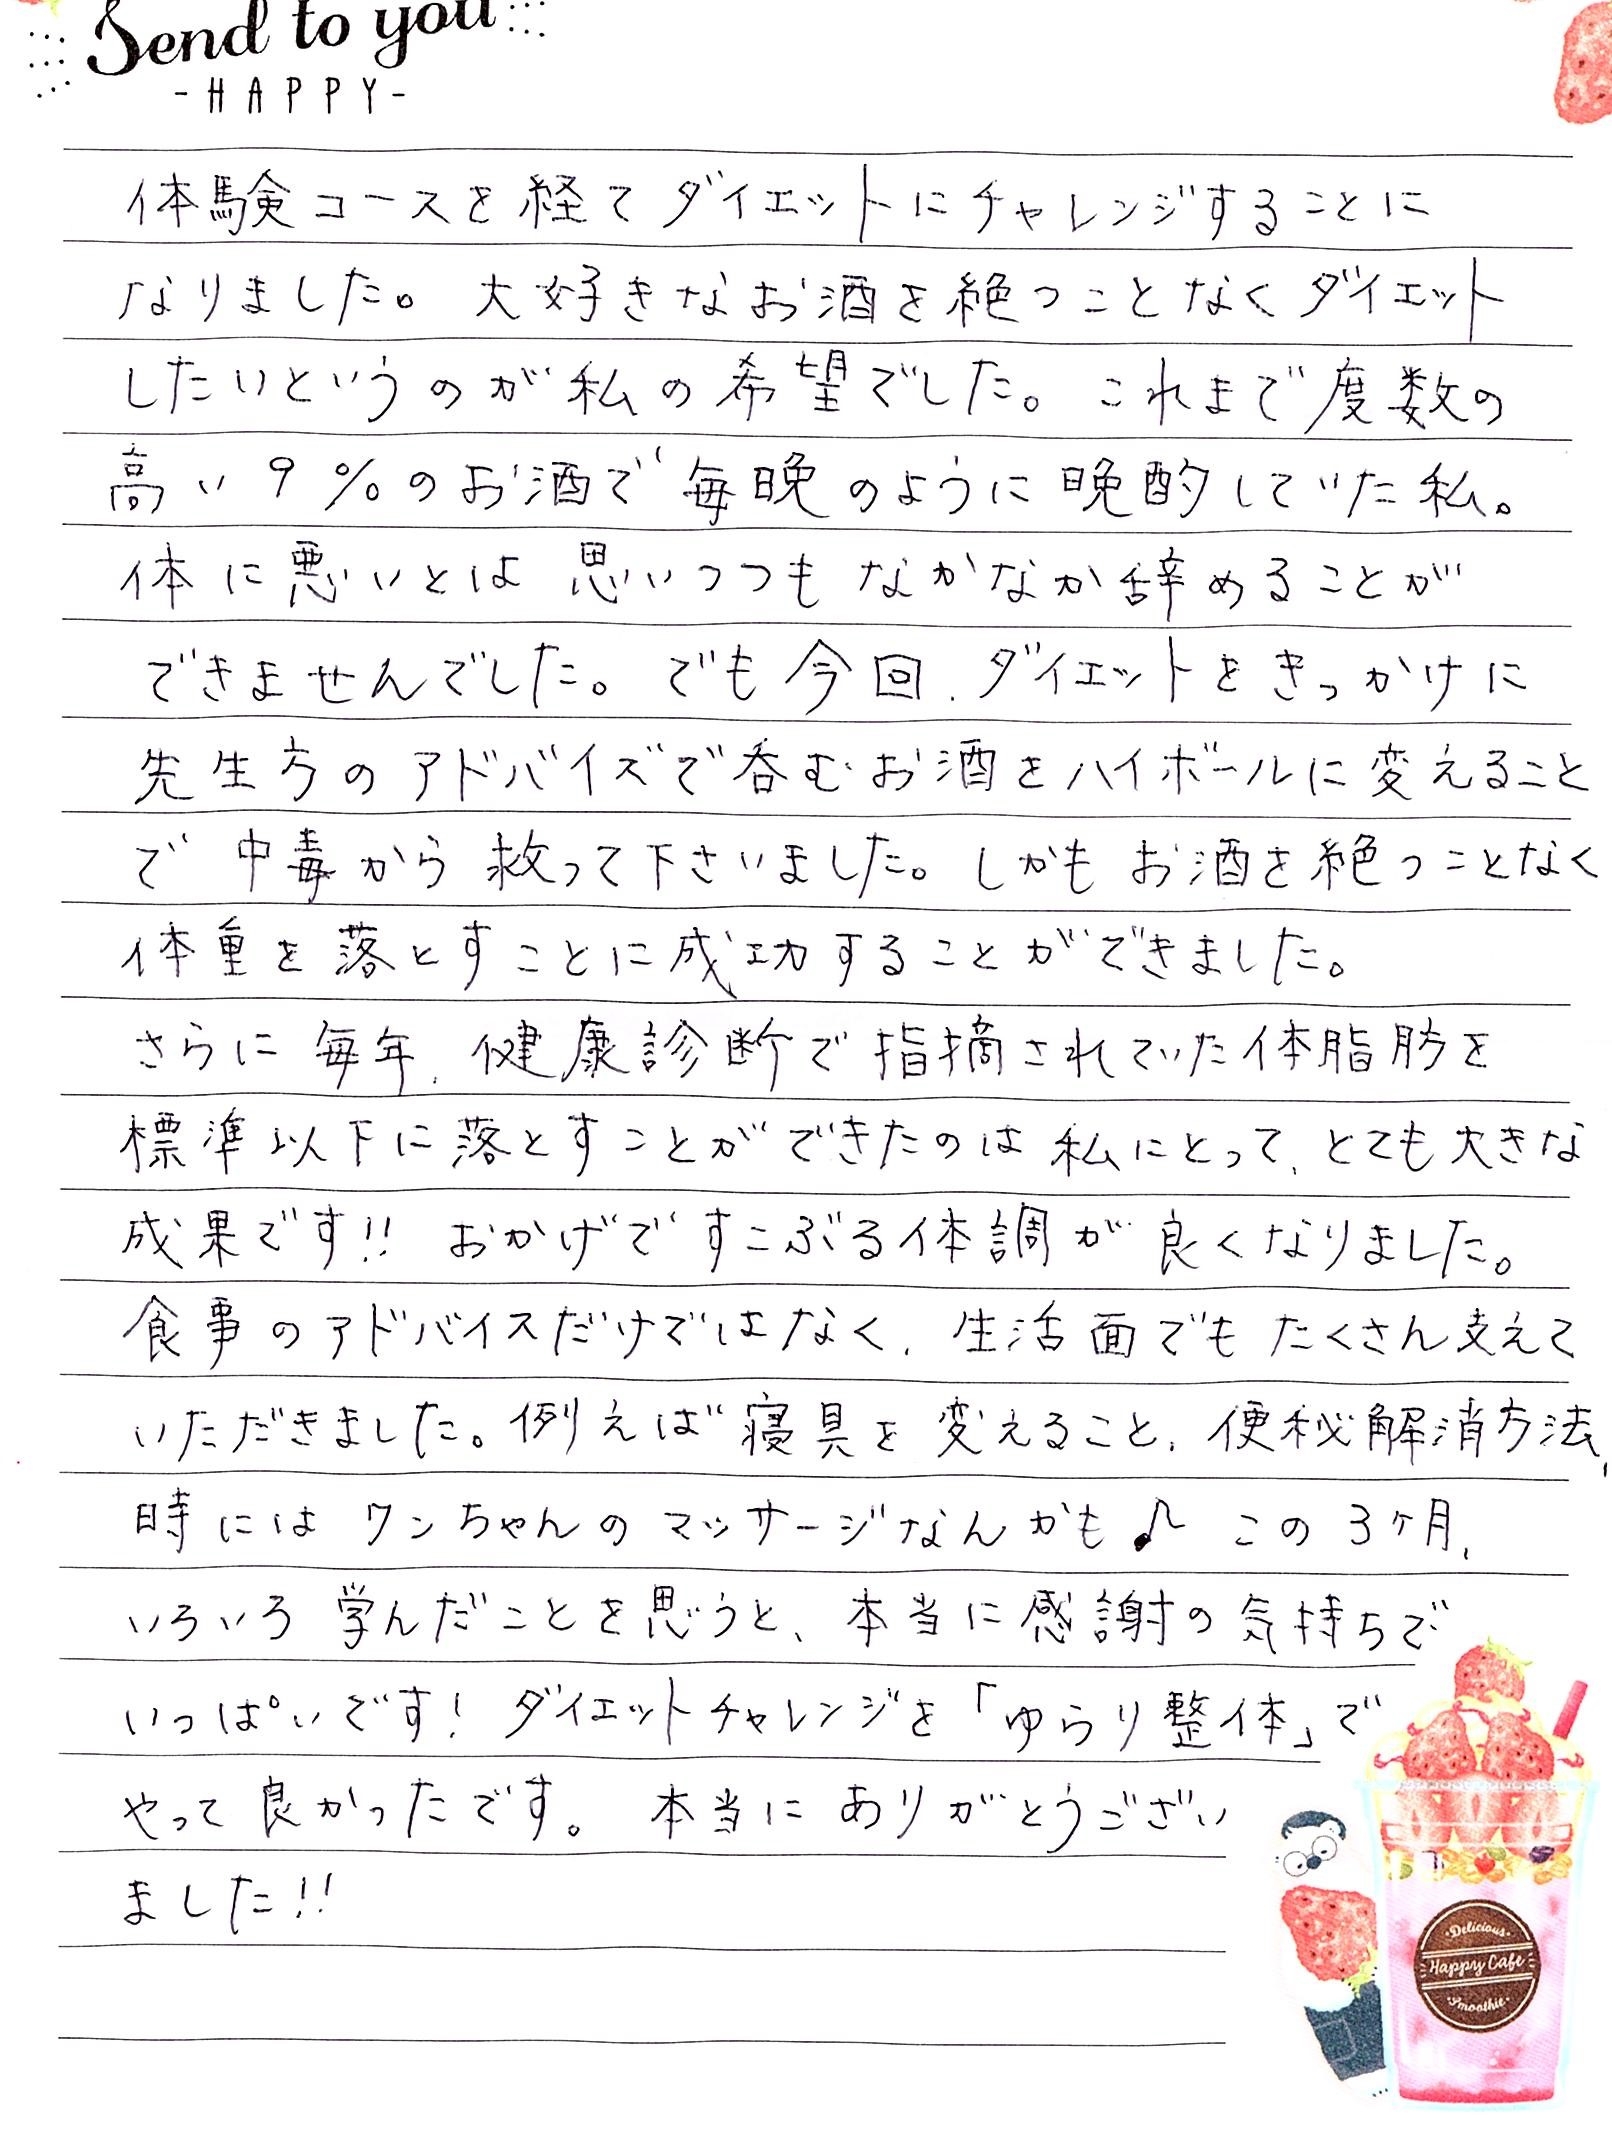 Send to you
-HAPPY-
体験コースを経てダイエットにチャレンジすることに
なりました。大好きなお酒を絶つことなくダイエット
したいというのが私の希望でした。これまで度数の
高い9%のお酒で毎晩のように晩酌していた私。
体に悪いとは思いつつもなかなか辞めることが
できませんでした。でも今回、ダイエットをきっかけに
先生方のアドバイズで呑むお酒をハイボールに変えること
で中毒から救って下さいました。しかもお酒を絶つことなく
体重を落とすことに成功することができました。
さらに毎年、健康診断で指摘されていた体脂肪を
標準以下に落とすことができたのは私にとって、とても大きな
成果です!! おかげですこぶる体調が良くなりました。
食事のアドバイスだけではなく、生活面でもたくさん支えて
いただきました。例えば寝具を変えること、便秘解消方法、
時にはワンちゃんのマッサージなんかも♪ この3ヶ月、
いろいろ学んだことを思うと、本当に感謝の気持ちで
いっぱいです! ダイエットチャレンジを「ゆらり整体」で
やって良かったです。 本当にありがとうござい
ました!!
Delicious
Happy Cafe
Smoothie